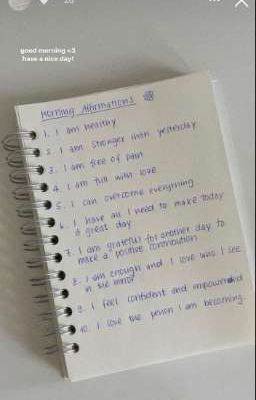 good morning <3
have a nice day!
Morning Affirmations
1. I am healthy
2. I am stronger than yesterday
3. I am free of pain
4. I am full with love
5. I can overcome everything
6. I have all I need to make today
a great day
7. I am grateful for another day to
make a positive contribution
8. I am enough and I love who I see
in the mirror
9. I feel confident and empowered
10. I love the person I am becoming